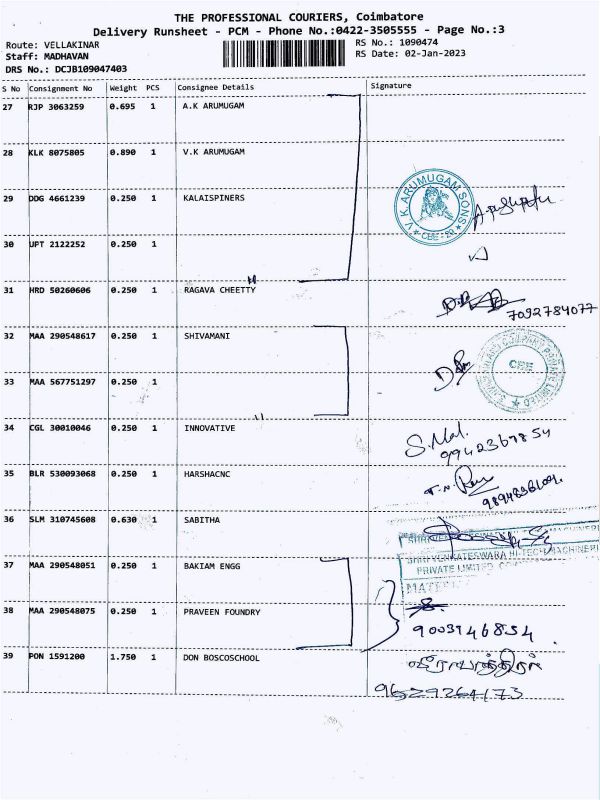 THE PROFESSIONAL COURIERS, Coimbatore
Delivery Runsheet - PCM - Phone No.:0422-3505555 - Page No.:3
Route: VELLAKINAR
RS No.: 1090474
Staff: MADHAVAN
RS Date: 02-Jan-2023
DRS No.: DCJB109047403
S No Consignment No Weight PCS Consignee Details Signature
27 RJP 3063259 0.695 1 A.K ARUMUGAM
28 KLK 8075805 0.890 1 V.K ARUMUGAM
29 DDG 4661239 0.250 1 KALAISPINERS
V.K.ARUMUGAM SONS
30 UPT 2122252 0.250 1
31 HRD 50260606 0.250 1 RAGAVA CHEETTY
7092784077
32 MAA 290548617 0.250 1 SHIVAMANI
CBE
33 MAA 567751297 0.250 1
34 CGL 30010046 0.250 1 INNOVATIVE
S.Mal.
9942367854
35 BLR 530093068 0.250 1 HARSHACNC
36 SLM 310745608 0.630 1 SABITHA
SHRI VENKATESWARA HI-TECH MACHINERI
PRIVATE LIMITED
37 MAA 290548051 0.250 1 BAKIAM ENGG
38 MAA 290548075 0.250 1 PRAVEEN FOUNDRY
9003946854
39 PON 1591200 1.750 1 DON BOSCOSCHOOL
9629264173